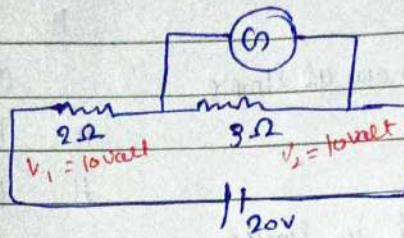 2Ω 3Ω
V₁ = 10 valt V₂ = 10 valt
20V